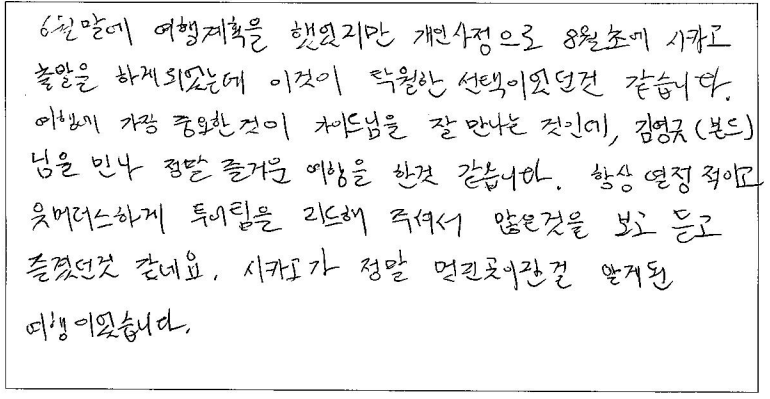 6월말에 여행계획을 했었지만 개인사정으로 8월초에 시카고
출발을 하게되었는데 이것이 탁월한 선택이었던것 같습니다.
여행에 가장 중요한것이 가이드님을 잘 만나는 것인데, 김영규(본드)
님을 만나 정말 즐거운 여행을 한것 같습니다. 항상 열정적이고
유머러스하게 투어팀을 리드해 주셔서 많은것을 보고 듣고
즐겼던것 같네요. 시카고가 정말 멋진곳이란걸 알게된
여행이었습니다.